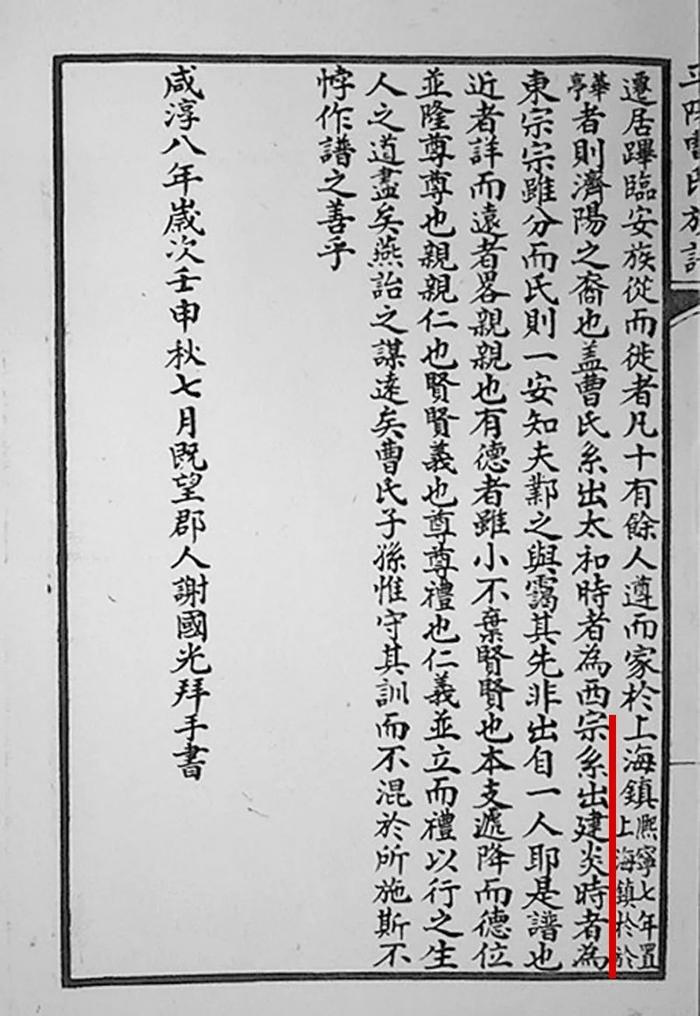 平陽曹氏族譜
遷居蹕臨安族從而徙者凡十有餘人遵而家於上海鎮熙寧七年置上海鎮扵於
華亭者則濟陽之裔也盖曹氏系出太和時者為西宗系出建炎時者為
東宗宗雖分而氏則一安知夫鄴之與靄其先非出自一人耶是譜也
近者詳而遠者畧親親也有德者雖小不棄賢賢也本支遞降而德位
並隆尊尊也親親仁也賢賢義也尊尊禮也仁義並立而禮以行之生
人之道盡矣燕詒之謀遠矣曹氏子孫惟守其訓而不混於所施斯不
悖作譜之善乎
咸淳八年嵗次壬申秋七月既望郡人謝國光拜手書